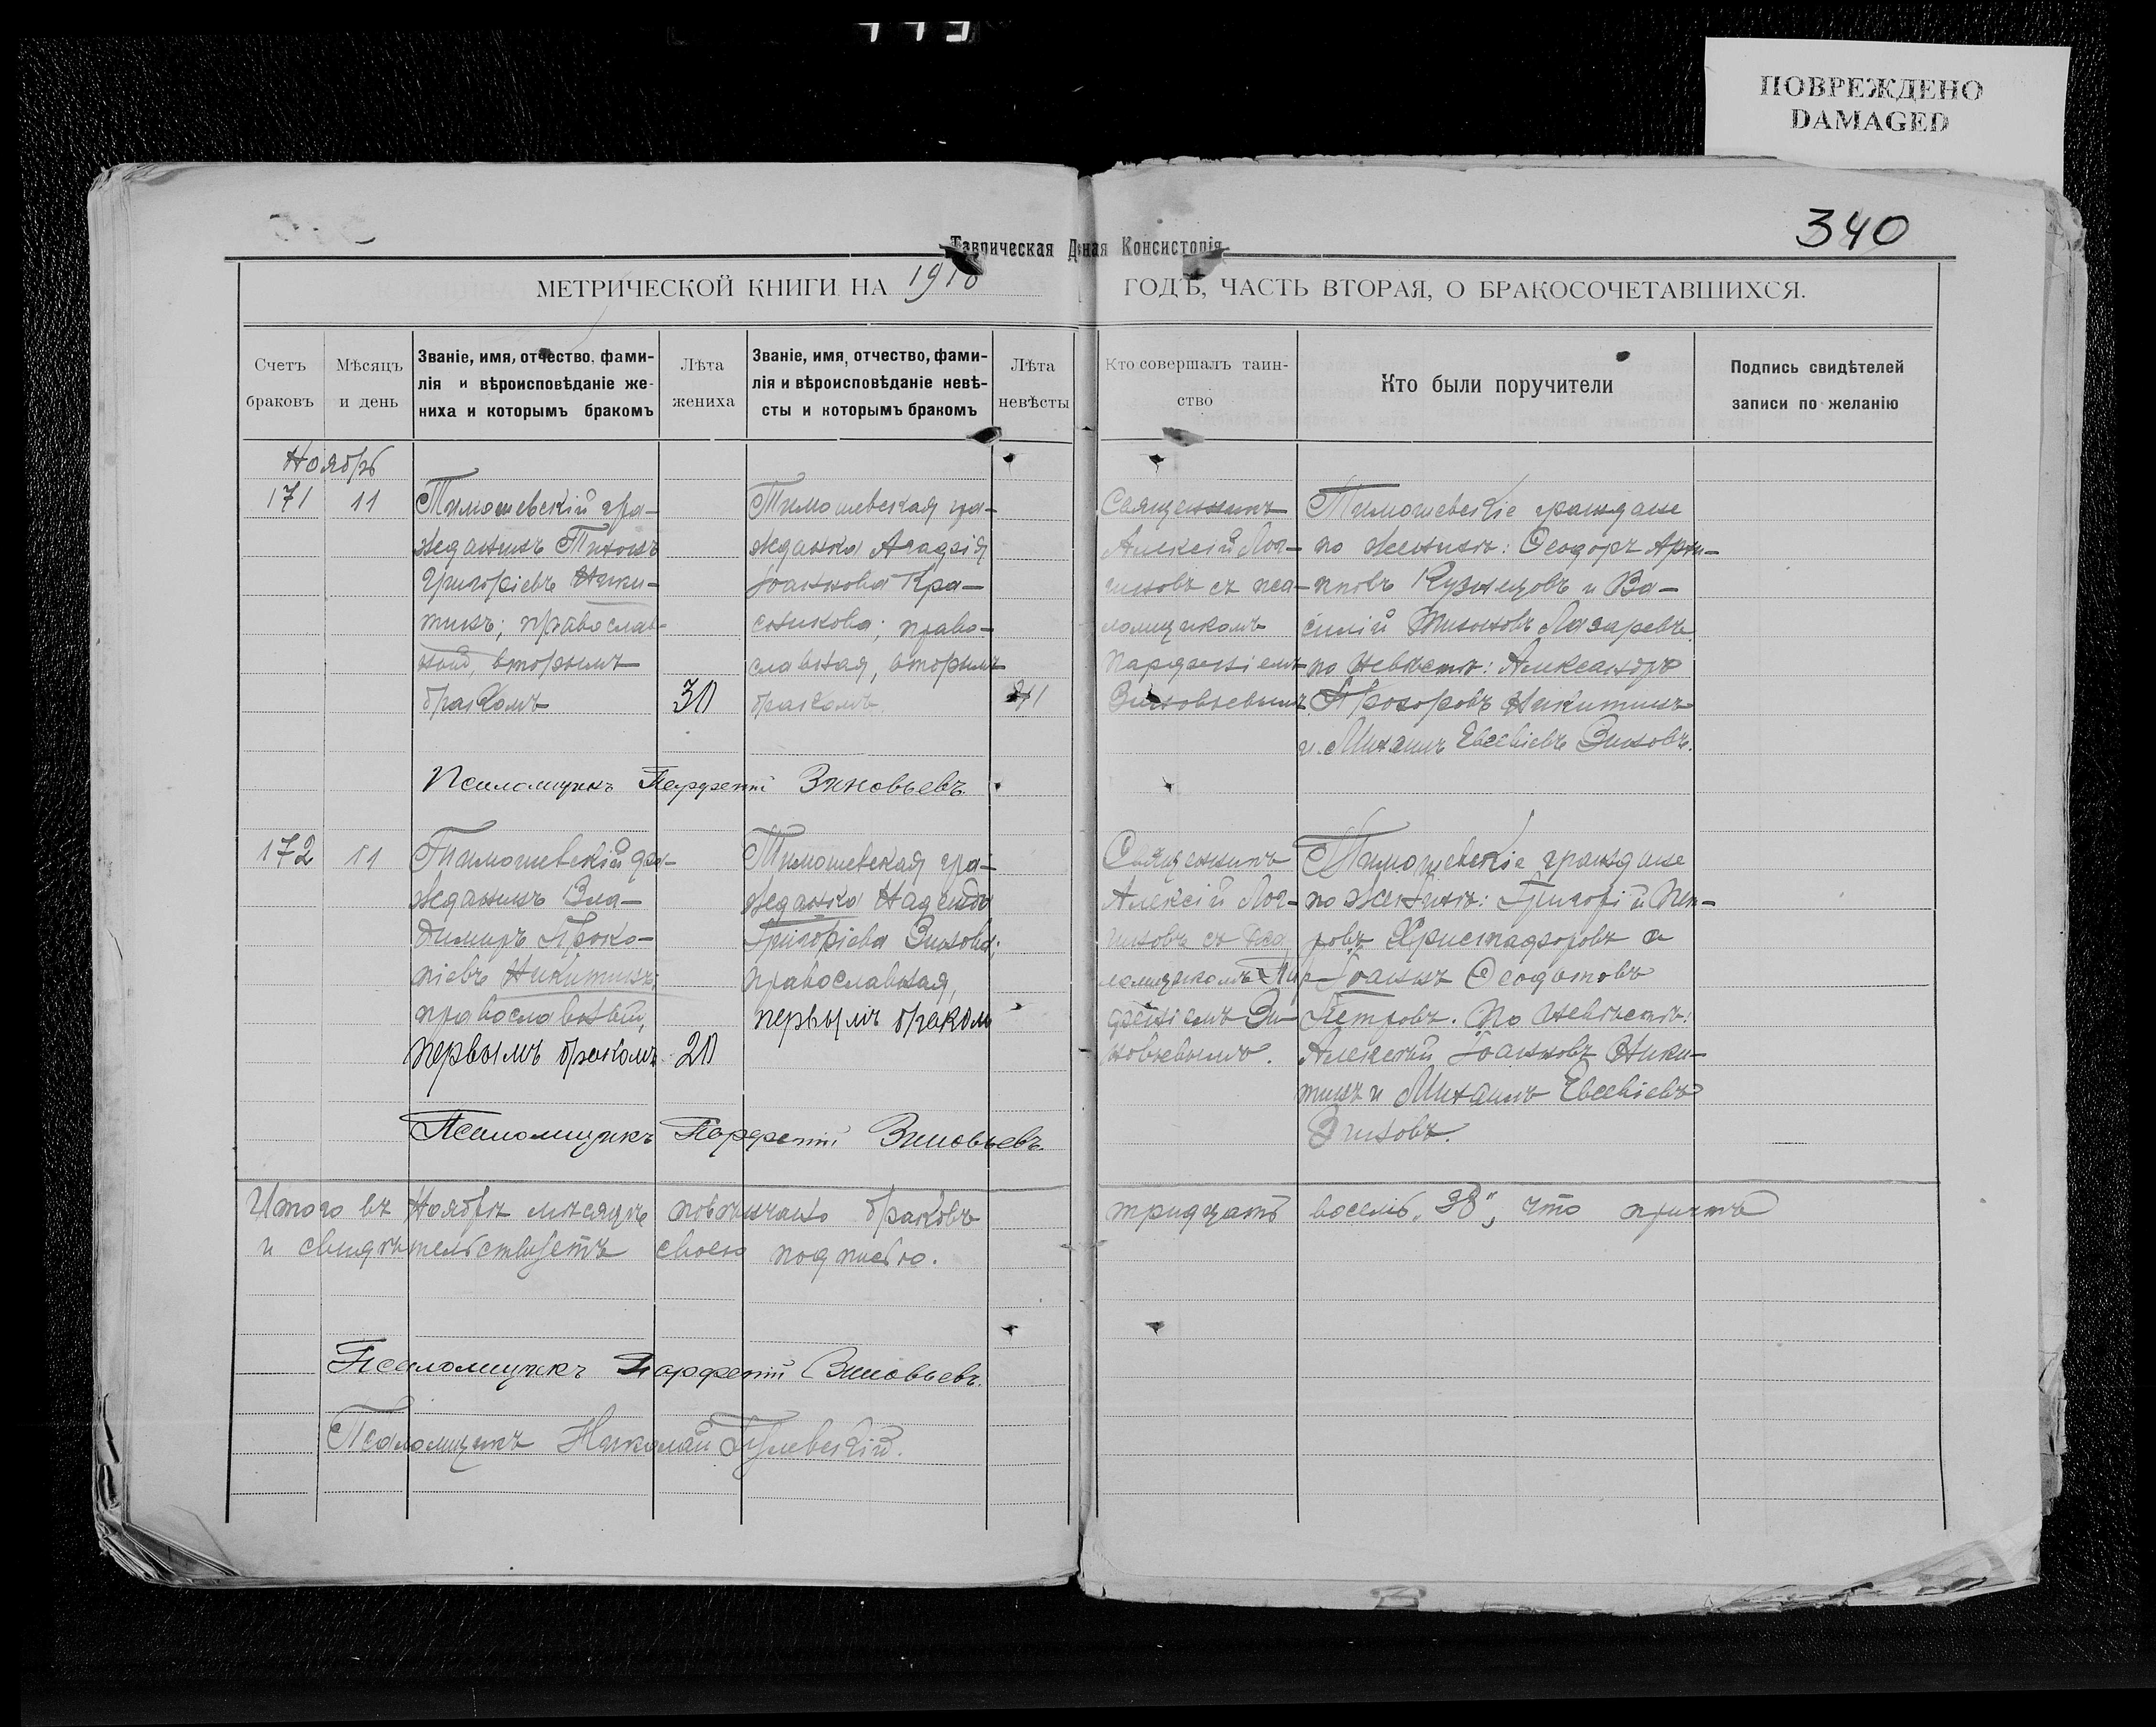 ПОВРЕЖДЕНО
DAMAGED
340
Таврическая Д ная Консисторія
МЕТРИЧЕСКОЙ КНИГИ НА 1918 ГОДЪ, ЧАСТЬ ВТОРАЯ, О БРАКОСОЧЕТАВШИХСЯ.
Счетъ
браковъ
Мѣсяцъ
и день
Званіе, имя, отчество, фами-
лія и вѣроисповѣданіе же-
ниха и которымъ бракомъ
Лѣта
жениха
Званіе, имя, отчество, фами-
лія и вѣроисповѣданіе невѣ-
сты и которымъ бракомъ
Лѣта
невѣсты
Кто совершалъ таин-
ство
Кто были поручители
Подпись свидѣтелей
записи по желанію
Ноябрь
171 11
Тимошевскій гра-
жданинъ Тихонъ
Григорієвъ Ники-
тинъ; православ-
ный, вторымъ
бракомъ
30
Тимошевская гра-
жданка
Іоаннова Кра-
сникова; право-
славная, вторымъ
бракомъ
Священникъ
Алексій Лог-
гиновъ съ пса-
ломщикомъ
Парѳеніемъ
Зиновьевымъ
Тимошевскіе граждане
по женихѣ: Ѳеодоръ Архи-
повъ Кузнецовъ и Ва-
силій Тихоновъ Лазаревъ
по невѣстѣ: Александръ
Прохоровъ Никитинъ
и Михаилъ Евсевіевъ Зиновъ.
Псаломщикъ Парфеній Зиновьевъ
172 11
Тимошевскій гра-
жданинъ Вла-
димиръ Проко-
піевъ Никитинъ;
православный,
первымъ бракомъ
20
Тимошевская гра-
жданка Надежда
Григоріева Зинова;
православная,
первымъ бракомъ
Священникъ
Алексій Лог-
гиновъ съ пса
ломщикомъ Пар-
ѳеніемъ Зи-
новьевымъ.
Тимошевскіе граждане
по женихѣ: Григорій Пет-
ровъ Христафоровъ и
Іоаннъ Ѳеодотовъ
Петровъ. По невѣстѣ:
Алексѣй Іоанновъ Ники-
тинъ и Михаилъ Евсевіевъ
Зиновъ.
Псаломщикъ Парфеній Зиновьевъ
Итого въ Ноябрѣ мѣсяцѣ повѣнчано браковъ тридцать восемь „38", что причтъ
и свидѣтельствуетъ своею подписью.
Псаломщикъ Парфеній Зиновьевъ.
Псаломщикъ Николай